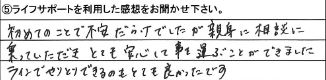 ⑤ライフサポートを利用した感想をお聞かせ下さい。
初めてのことで不安だらけでしたが親身に相談に
乗っていただき とても安心して事を運ぶことができました
ラインでやりとりできるのもとても良かったです